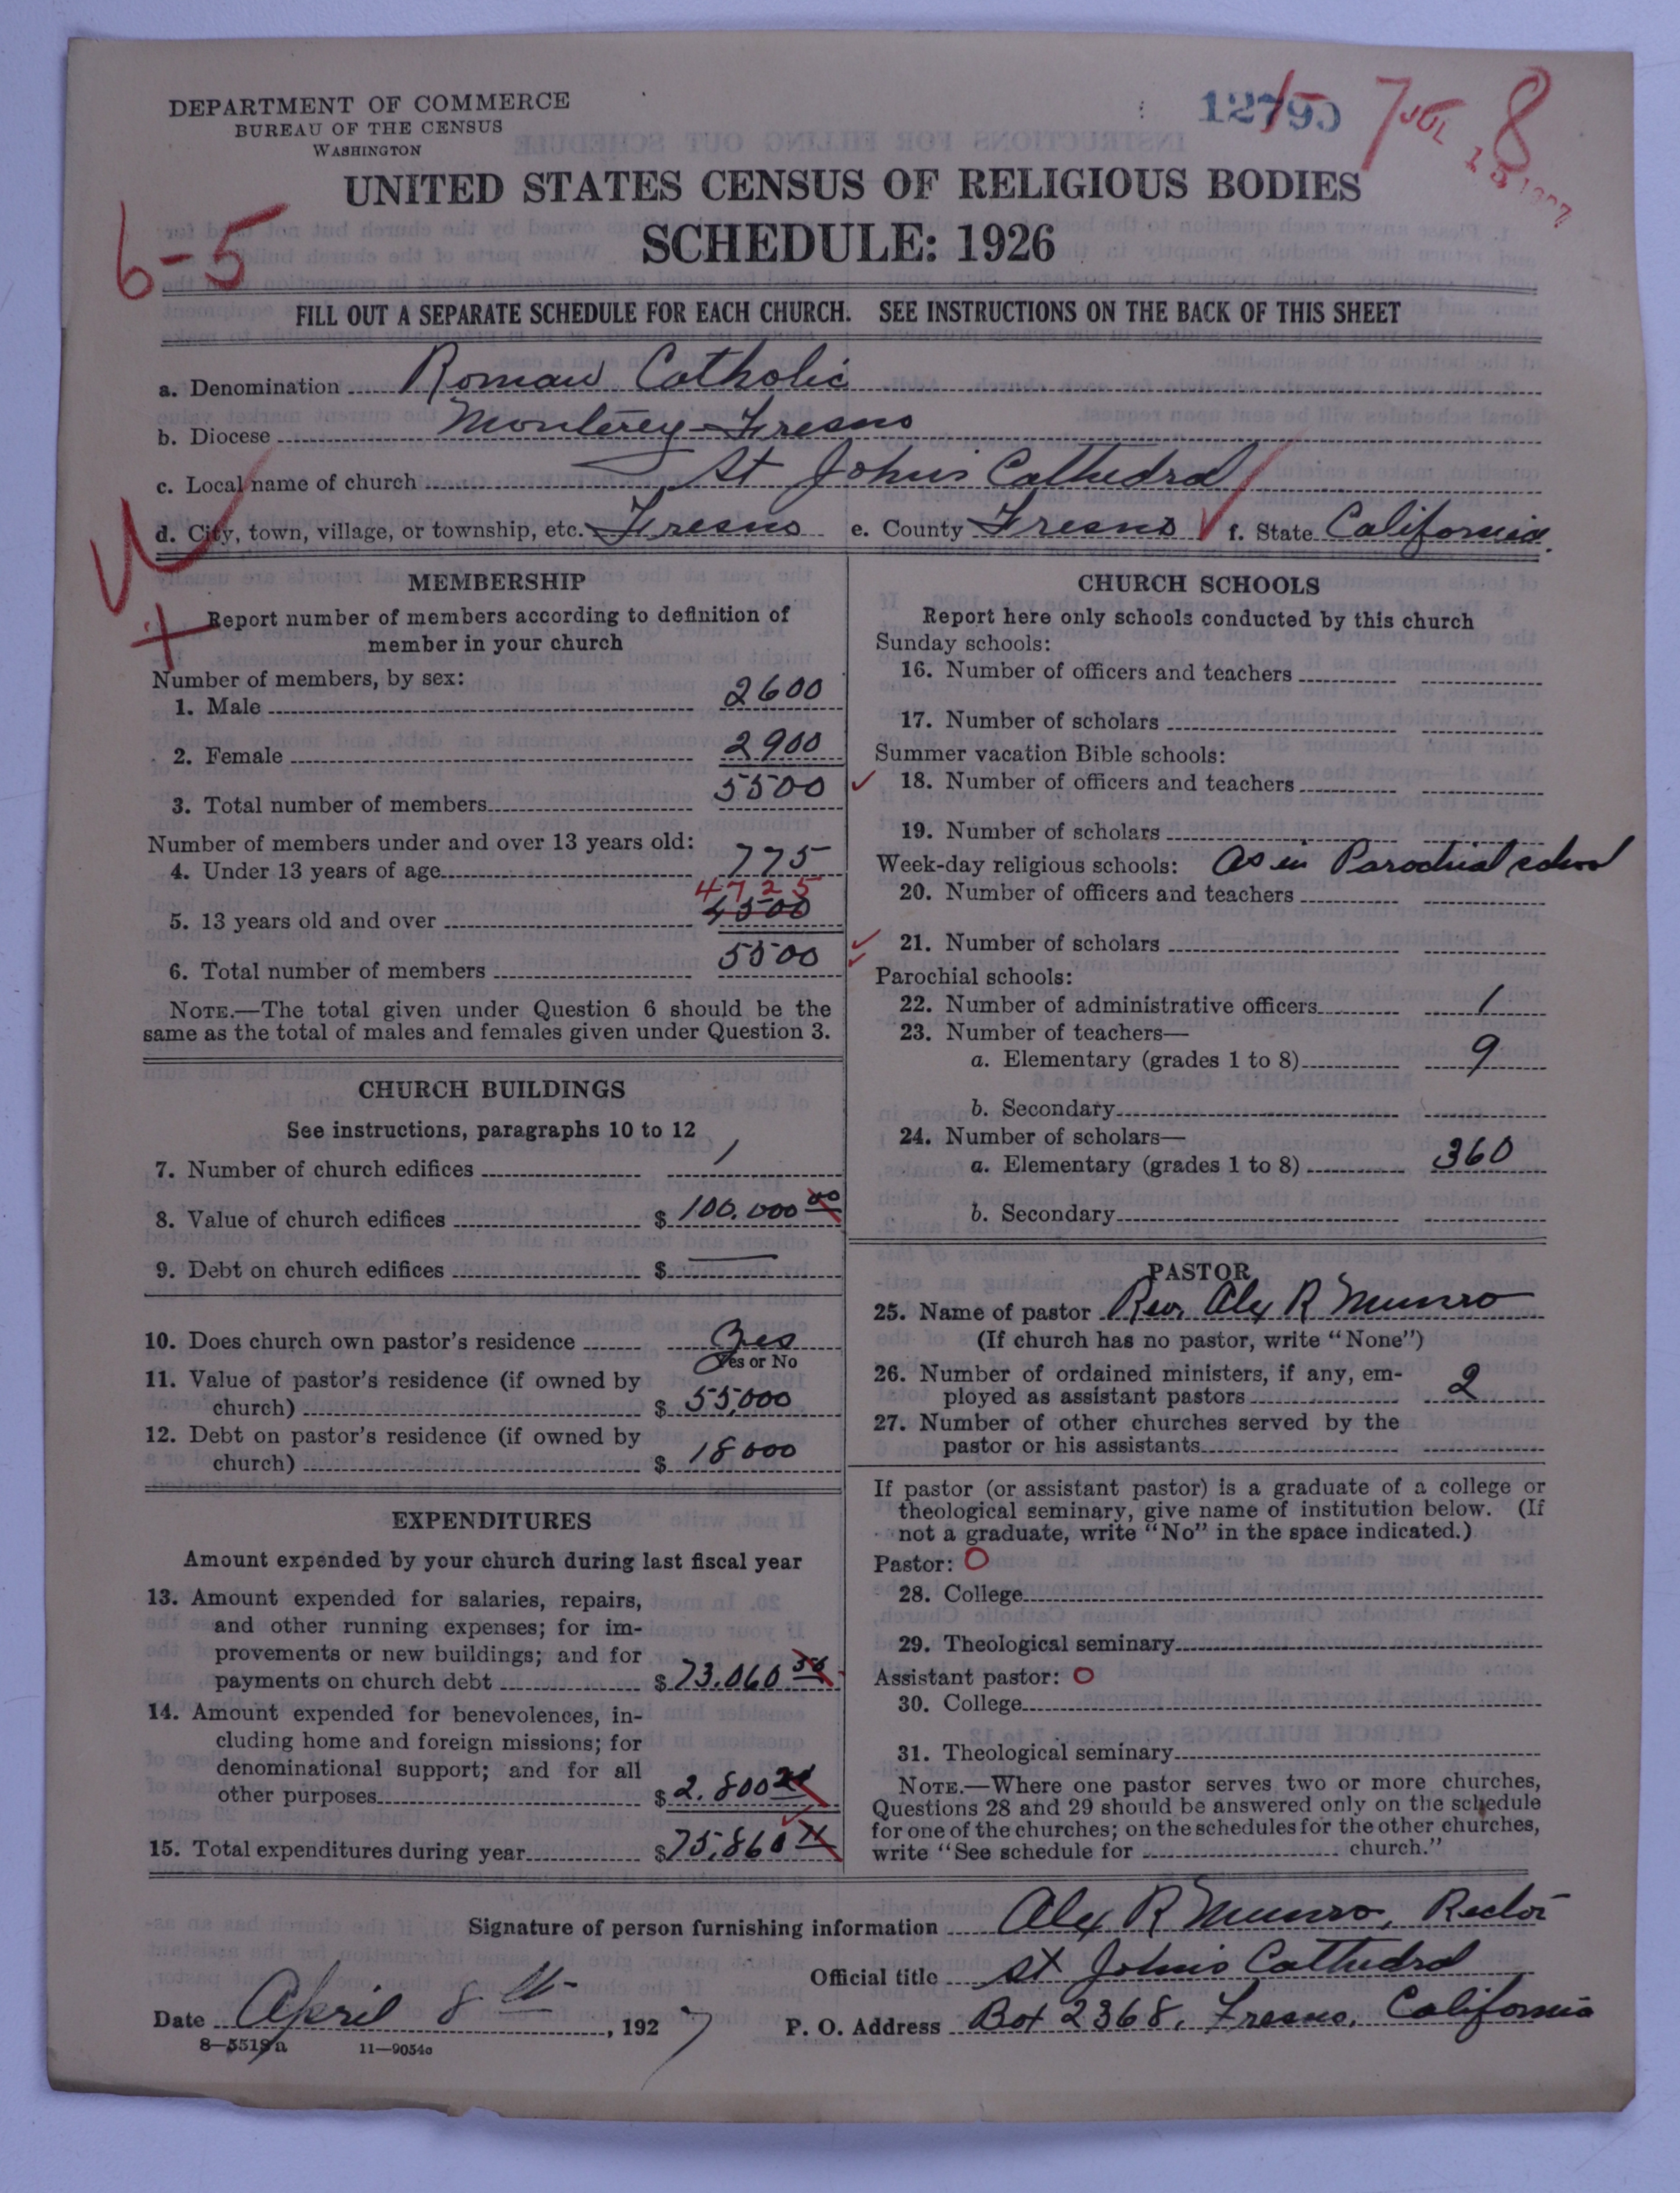 DEPARTMENT OF COMMERCE
BUREAU OF THE CENSUS
WASHINGTON
7 8
JUL 15 1927
UNITED STATES CENSUS OF RELIGIOUS BODIES
SCHEDULE: 1926
6-5
FILL OUT A SEPARATE SCHEDULE FOR EACH CHURCH. SEE INSTRUCTIONS ON THE BACK OF THIS SHEET
a. Denomination Roman Catholic
b. Diocese Monterey-Fresno
c. Local name of church St Johns Cathedral
d. City, town, village, or township, etc. Fresno e. County Fresno f. State California.
MEMBERSHIP
Report number of members according to definition of
member in your church
Number of members, by sex:
1. Male 2600
2. Female 2900
3. Total number of members 5500
Number of members under and over 13 years old:
4. Under 13 years of age 775
4725
5. 13 years old and over 4500
6. Total number of members 5500
NOTE.—The total given under Question 6 should be the
same as the total of males and females given under Question 3.
CHURCH BUILDINGS
See instructions, paragraphs 10 to 12
7. Number of church edifices 1
8. Value of church edifices $ 100.000 00
9. Debt on church edifices $ —
10. Does church own pastor's residence Yes
Yes or No
11. Value of pastor's residence (if owned by
church) $ 55,000
12. Debt on pastor's residence (if owned by
church) $ 18000
EXPENDITURES
Amount expended by your church during last fiscal year
13. Amount expended for salaries, repairs,
and other running expenses; for im-
provements or new buildings; and for
payments on church debt $ 73.060
14. Amount expended for benevolences, in-
cluding home and foreign missions; for
denominational support; and for all
other purposes $ 2.800
15. Total expenditures during year $ 75,860
CHURCH SCHOOLS
Report here only schools conducted by this church
Sunday schools:
16. Number of officers and teachers
17. Number of scholars
Summer vacation Bible schools:
18. Number of officers and teachers
19. Number of scholars
Week-day religious schools: as in Parochial school
20. Number of officers and teachers
21. Number of scholars
Parochial schools:
22. Number of administrative officers 1
23. Number of teachers—
a. Elementary (grades 1 to 8) 9
b. Secondary
24. Number of scholars—
a. Elementary (grades 1 to 8) 360
b. Secondary
PASTOR
25. Name of pastor Rev. Alex R Munro
(If church has no pastor, write "None")
26. Number of ordained ministers, if any, em-
ployed as assistant pastors 2
27. Number of other churches served by the
pastor or his assistants
If pastor (or assistant pastor) is a graduate of a college or
theological seminary, give name of institution below. (If
not a graduate, write "No" in the space indicated.)
Pastor: O
28. College
29. Theological seminary
Assistant pastor: O
30. College
31. Theological seminary
NOTE.—Where one pastor serves two or more churches,
Questions 28 and 29 should be answered only on the schedule
for one of the churches; on the schedules for the other churches,
write "See schedule for church."
Signature of person furnishing information Alex R Munro, Rector
Official title St Johns Cathedral
Date April 8th, 1927 P. O. Address Box 2368, Fresno, California
8-5518a 11-9054c